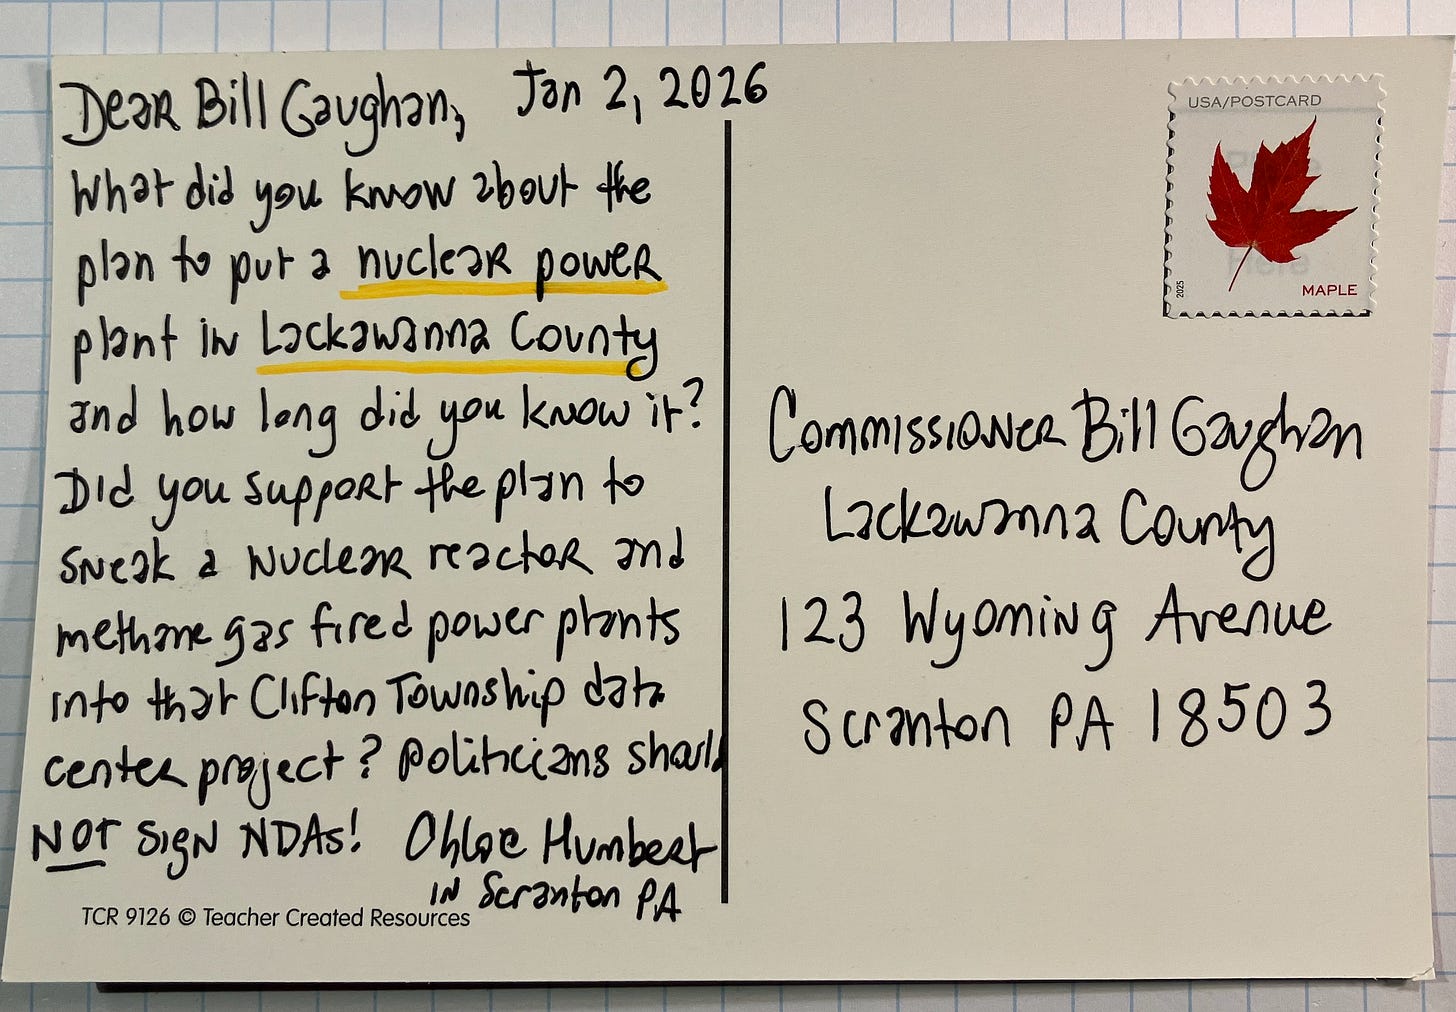 Dear Bill Gaughan, Jan 2, 2026
What did you know about the
plan to put a nuclear power
plant in Lackawanna County
and how long did you know it?
Did you support the plan to
sneak a nuclear reactor and
methane gas fired power plants
into that Clifton Township data
center project? Politicians should
NOT sign NDAs! Chloe Humbert
in Scranton PA
TCR 9126 © Teacher Created Resources
USA/POSTCARD
Place
Here
2025
MAPLE
Commissioner Bill Gaughan
Lackawanna County
123 Wyoming Avenue
Scranton PA 18503